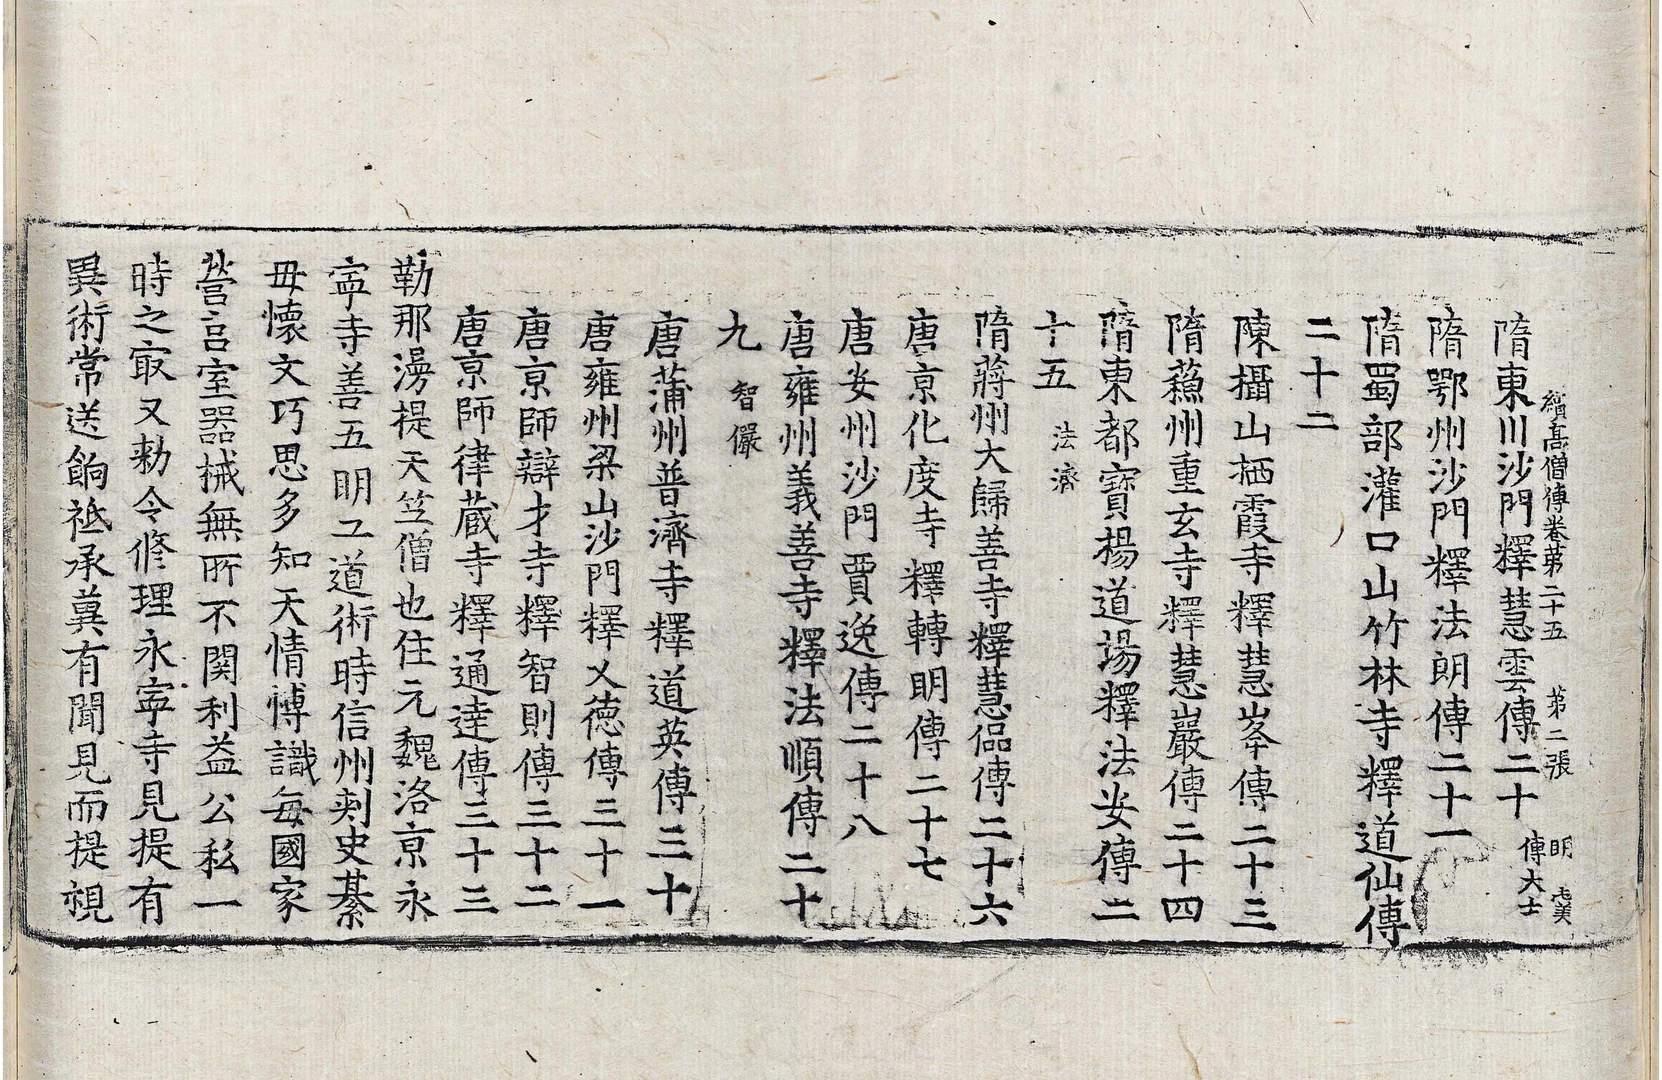 續高僧傳卷苐二十五 第二張 明
隋東川沙門釋慧雲傳二十 傳大士
隋鄂州沙門釋法朗傳二十一
隋蜀部灌口山竹林寺釋道仙傳
二十二
陳攝山栖霞寺釋慧峯傳二十三
隋蘓州重玄寺釋慧巖傳二十四
隋東都寶楊道場釋法安傳二
十五 法濟
隋蔣州大歸善寺釋慧偘傳二十六
唐京化度寺釋轉明傳二十七
唐安州沙門賈逸傳二十八
唐雍州義善寺釋法順傳二十
九 智儼
唐蒲州普濟寺釋道英傳三十
唐雍州梁山沙門釋乂德傳三十一
唐京師辯才寺釋智則傳三十二
唐京師律蔵寺釋通逹傳三十三
勒那漫提天竺僧也住元魏洛京永
寧寺善五明工道術時信州刾史綦
毋懷文巧思多知天情愽識每國家
營宫室器械無所不関利益公私一
時之㝡又勑令脩理永寧寺見提有
異術常送餉祗承兾有聞見而提視